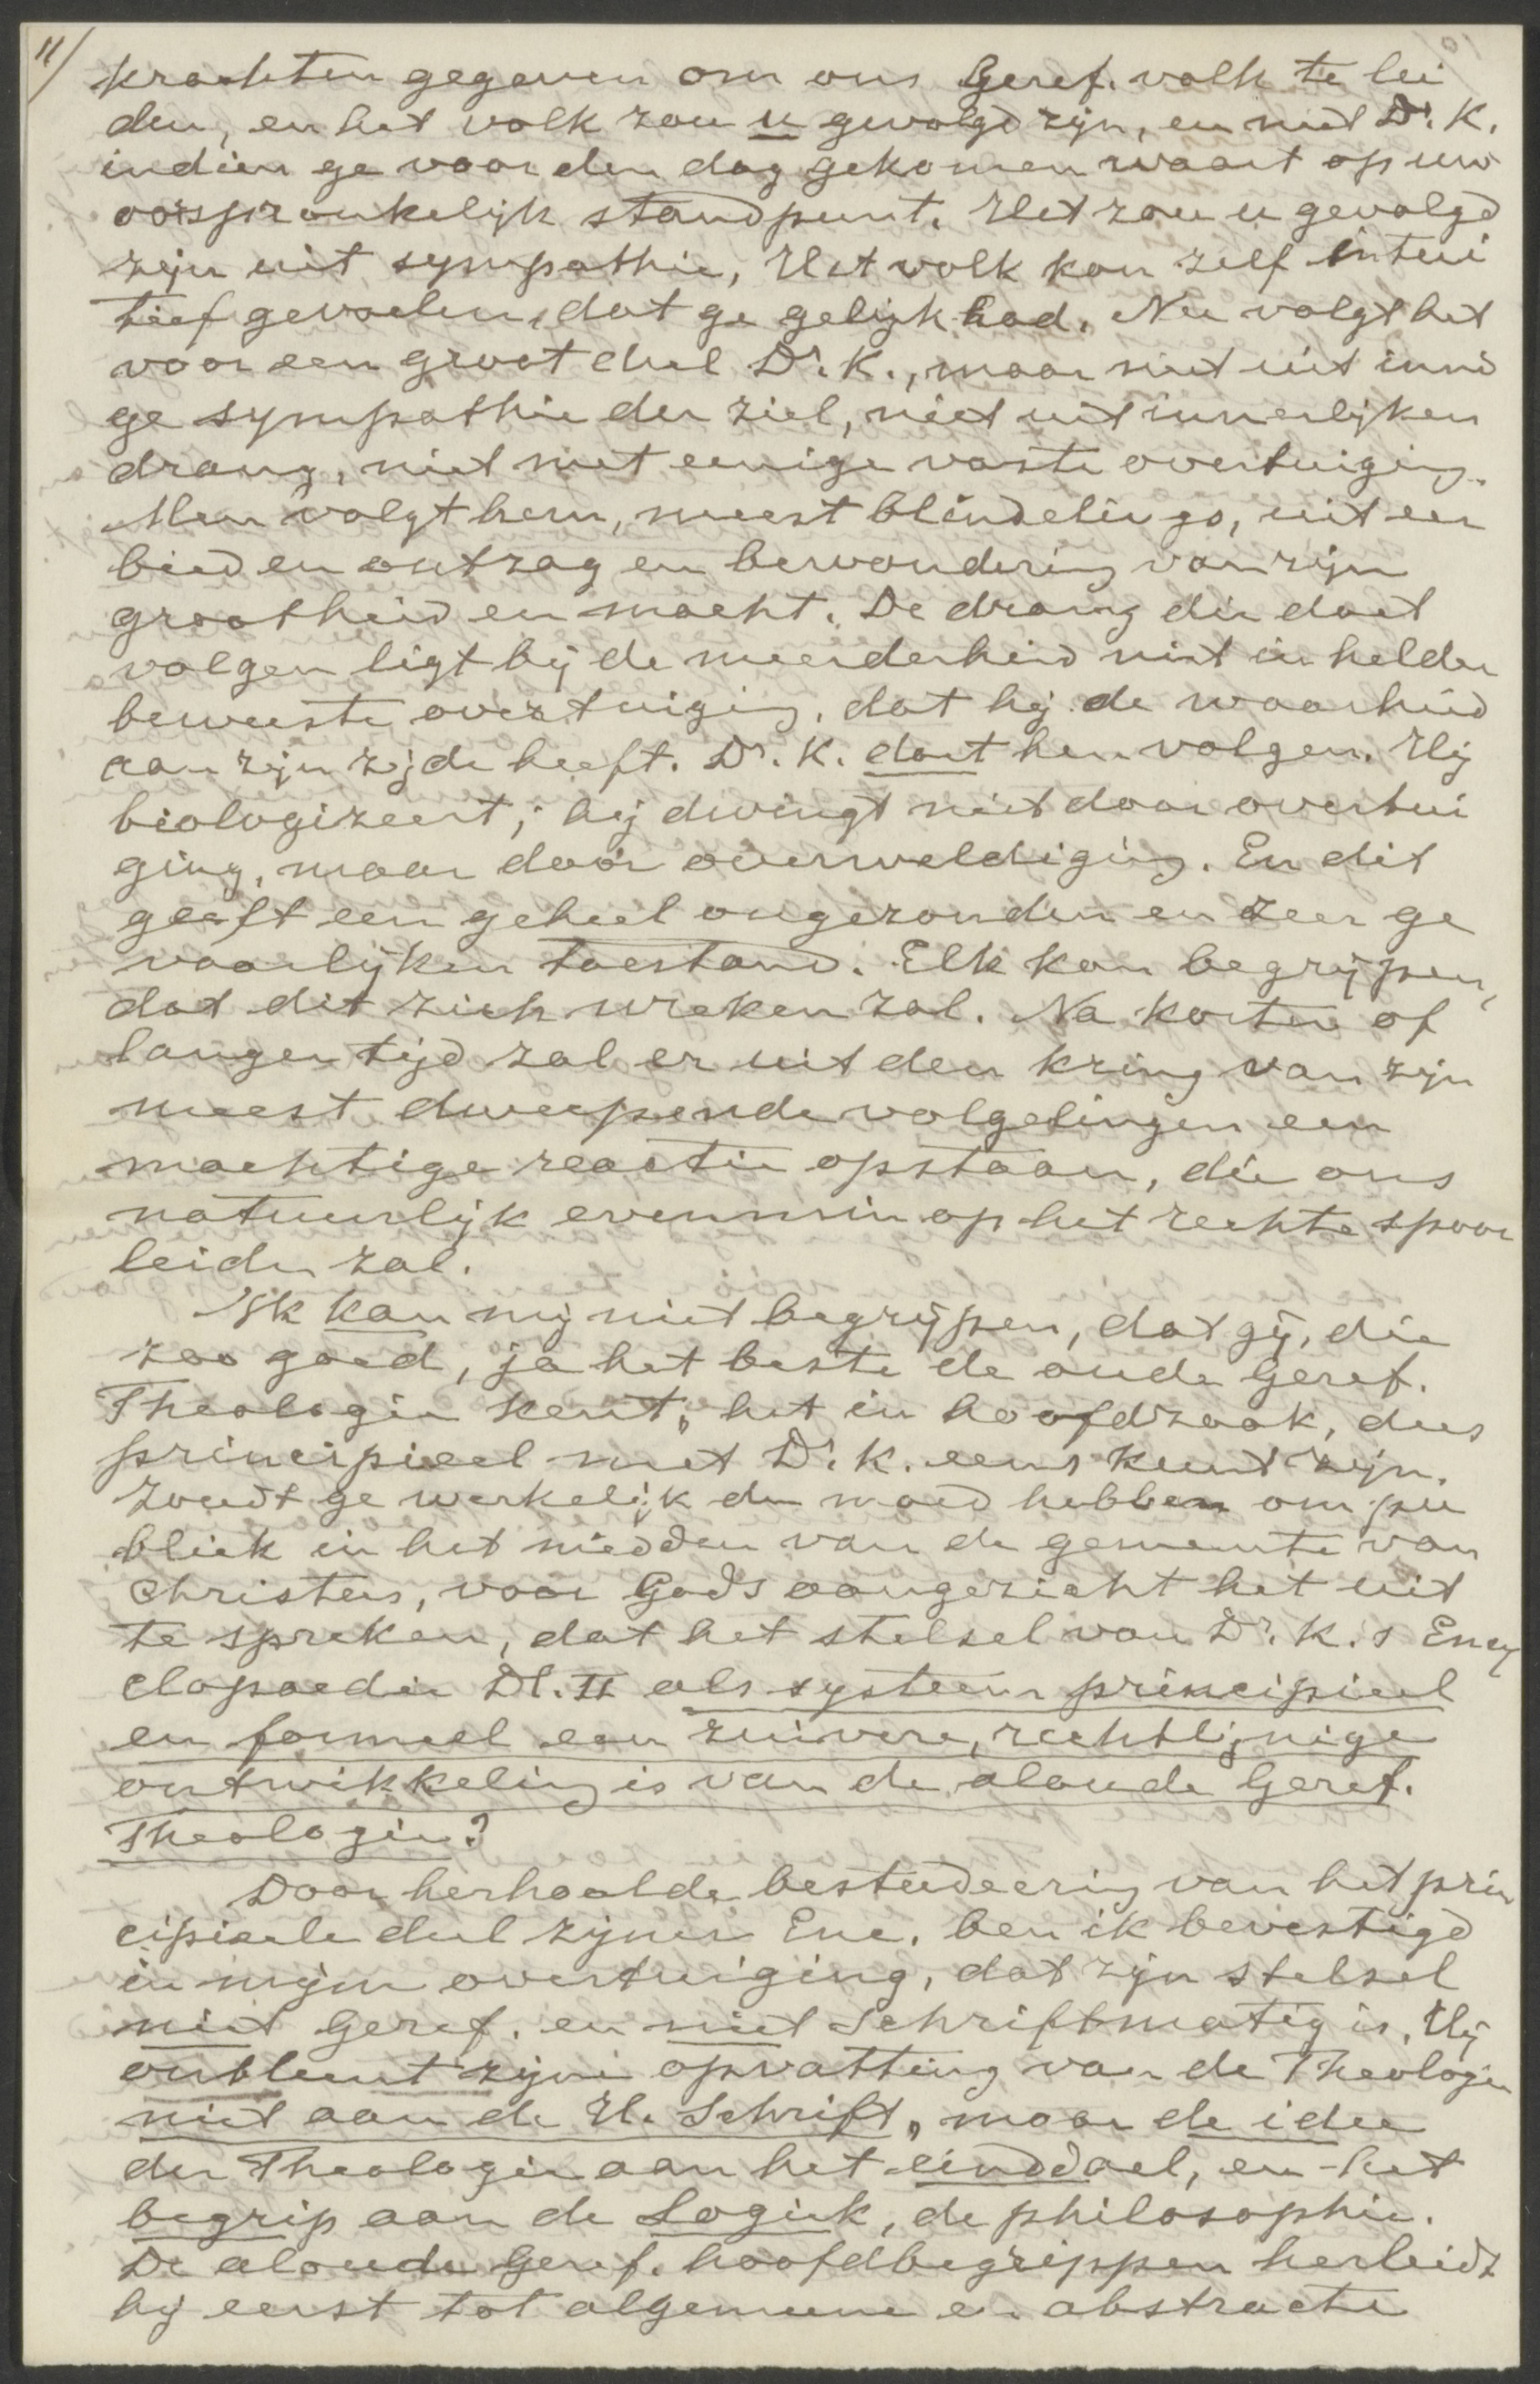 11/
krachten gegeven om ons Geref. volk te lei
den, en het volk zou u gevolgd zijn, en niet Dr. K.
indien ge voor den dag gekomen waart op uw
oorspronkelijk standpunt. Het zou u gevolgd
zijn uit sympathie, Het volk kon zelf intui
tief gevoelen, dat ge gelijk had. Nu volgt het
voor een groot deel Dr. K., maar niet uit inni
ge sympathie der ziel, niet uit innerlijken
drang, niet met eenige vaste overtuiging.
Men volgt hem, meest blindelings, uit eer
bied en ontzag en bewondering van zijn
grootheid en macht. De drang die doet
volgen ligt bij de meerderheid niet in helder
bewuste overtuiging, dat hij de waarheid
aan zijn zijde heeft. Dr. K. doet hen volgen. Hij
biologizeert; hij dwingt niet door overtui
ging, maar door overweldiging. En dit
geeft een geheel ongezonden en zeer ge
vaarlijken toestand. Elk kan begrijpen,
dat dit zich wreken zal. Na korten of
langen tijd zal er uit den kring van zijn
meest dweepende volgelingen een
machtige reactie opstaan, die ons
natuurlijk evenmin op het rechte spoor
leiden zal.
Ik kan mij niet begrijpen, dat gij, die
zoo goed, ja het beste de oude Geref.
Theologie kent, het in hoofdzaak, dus
principieel met Dr. K. eens kunt zijn.
Zoudt ge werkelijk den moed hebben om pu
bliek in het midden van de gemeente van
Christus, voor Gods aangezicht het uit
te spreken, dat het stelsel van Dr. K.s Ency
clopaedie Dl. II als systeem principieel
en formeel een zuivere, rechtlijnige
ontwikkeling is van de aloude Geref.
Theologie?
Door herhaalde bestudeering van het prin
cipieele deel zijner Enc. ben ik bevestigd
in mijn overtuiging, dat zijn stelsel
niet Geref. en niet Schriftmatig is. Hij
ontleent zijne opvatting van de Theologie
niet aan de H. Schrift, maar de idee
der Theologie aan het einddoel, en het
begrip aan de Logiek, de philosophie.
De aloude Geref. hoofdbegrippen herleidt
hij eerst tot algemeene en abstracte